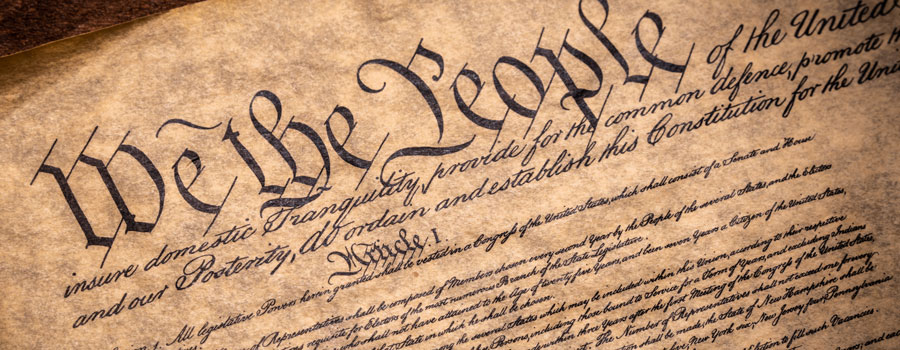 We the People of the United
insure domestic Tranquility, provide for the common defence, promote
and our Posterity, do ordain and establish this Constitution for the
Article. I.
All legislative Powers herein granted shall be vested in a Congress of the United States, which shall consist of a Senate and House
Representatives shall be composed of Members chosen every second Year by the People of the several States, and the Electors
requisite for Electors of the most numerous Branch of the State Legislature.
who shall not have attained to the Age of twenty five Years, and been seven Years a Citizen of the United States,
State in which he shall be chosen.
among the several States which may be included within this Union, according to their respective
Persons, including those bound to Service for a Term of Years, and excluding Indians
within three Years after the first Meeting of the Congress of the United States,
The Number of Representatives shall not exceed one for every
shall be made, the State of New Hampshire shall be
New York six, New Jersey four, Pennsylvania
to fill such Vacancies.